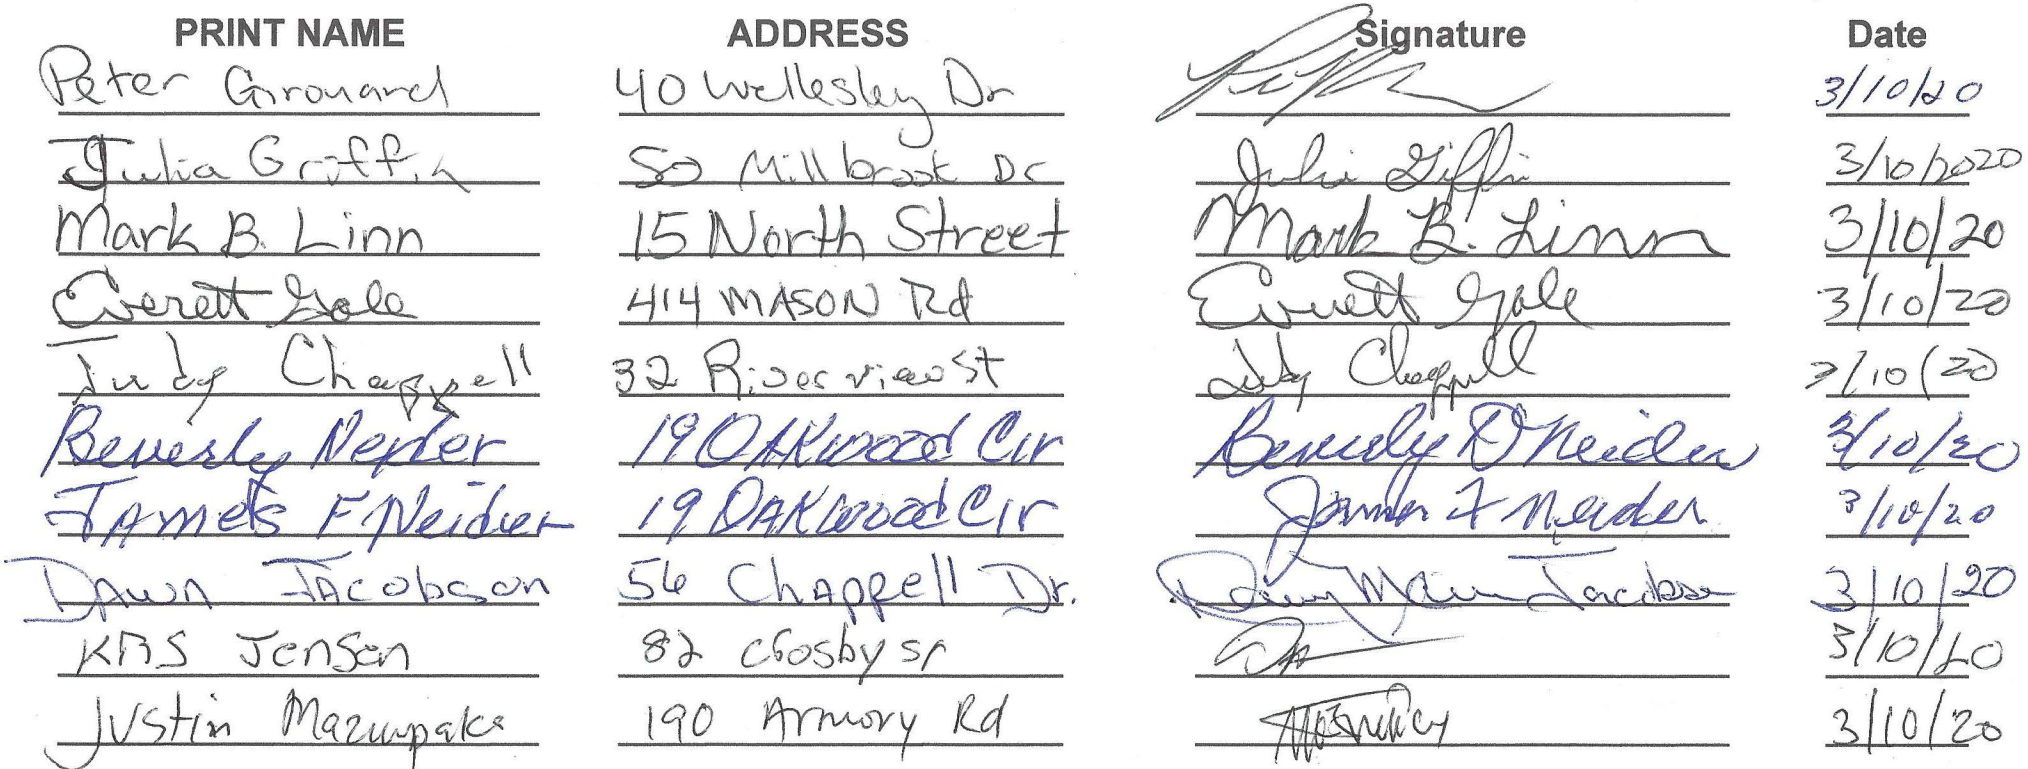 PRINT NAME ADDRESS Signature Date
Peter Girouard 40 Wellesley Dr 3/10/20
Julia Griffin 50 Millbrook Dr Julia Griffin 3/10/2020
Mark B. Linn 15 North Street Mark B. Linn 3/10/20
Everett Gale 414 MASON Rd Everett Gale 3/10/20
Judy Chappell 32 Riverview St Judy Chappell 3/10/20
Beverly Neider 19 OAKwood Cir Beverly D Neider 3/10/20
JAmes F Neider 19 OAKwood Cir James F Neider 3/10/20
DAwn JAcobson 56 ChAppell Dr. Dawn Jacobson 3/10/20
Jensen 82 crosby st 3/10/20
Justin 190 Armory Rd 3/10/20